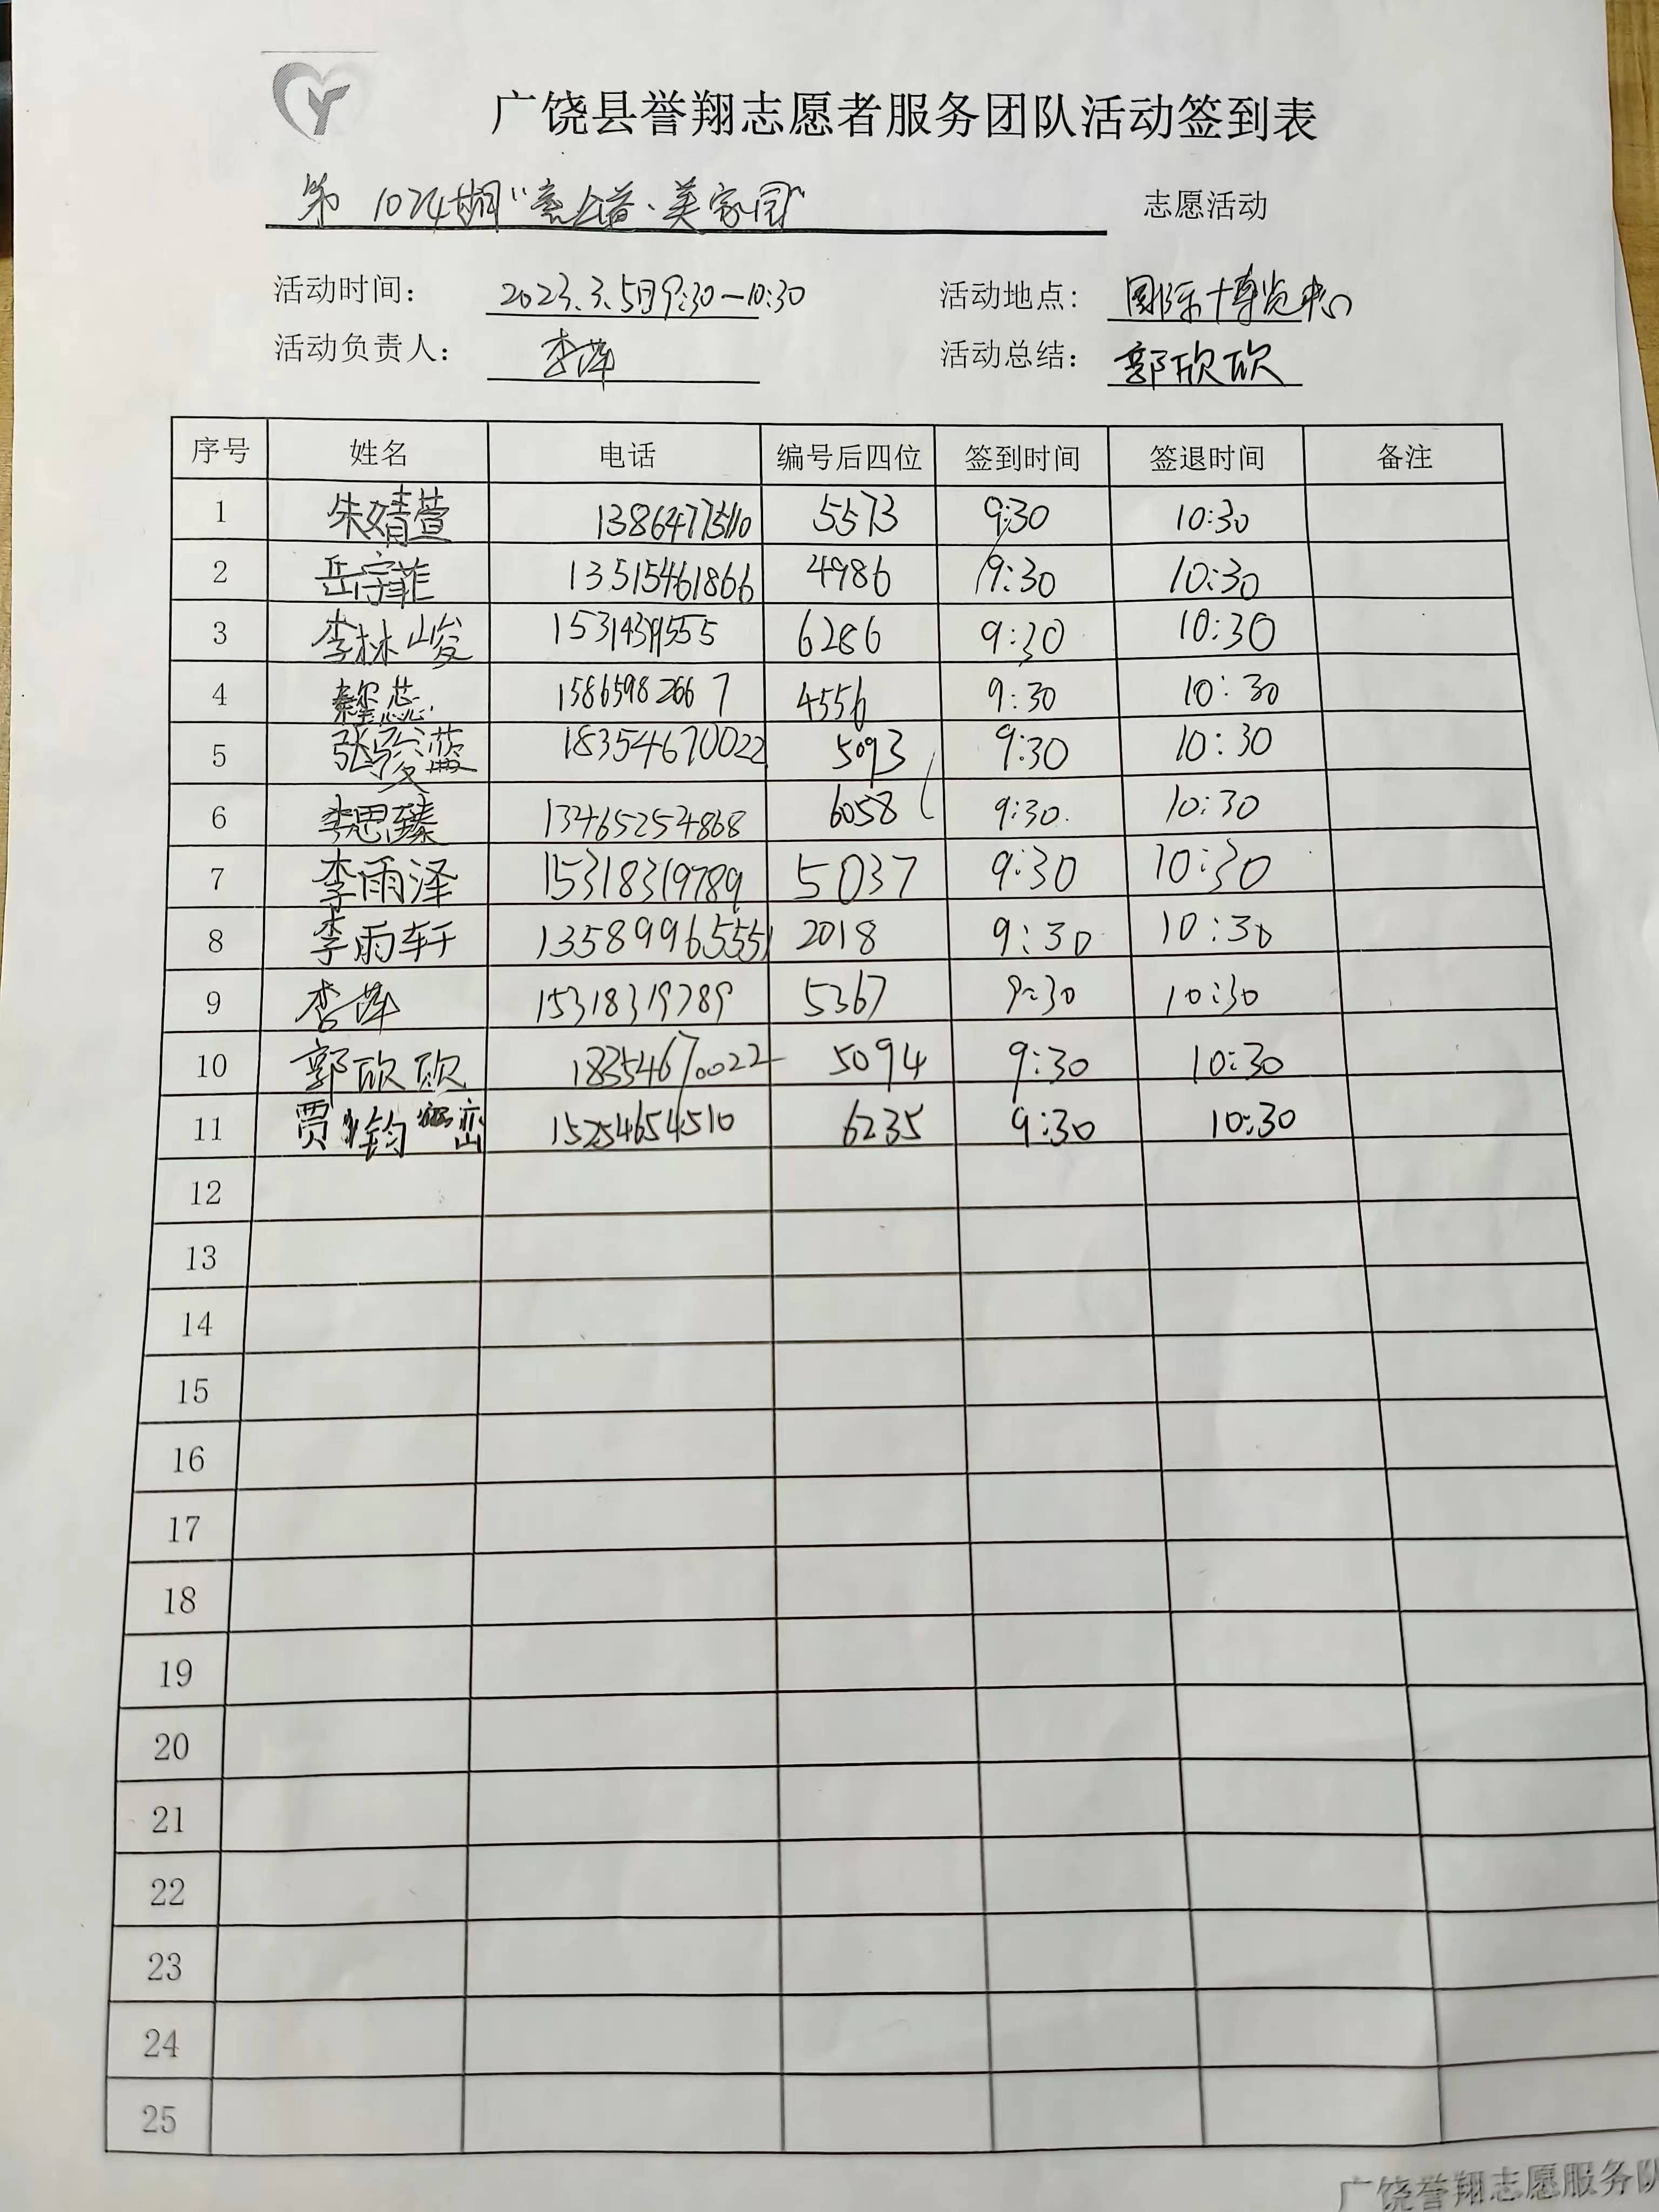 广饶县誉翔志愿者服务团队活动签到表
第1074期“ 公益、美家园” 志愿活动
活动时间： 2023.3.5日9:30—10:30 活动地点： 国际博览中心
活动负责人： 李萍 活动总结： 郭欣欣
序号 姓名 电话 编号后四位 签到时间 签退时间 备注
1 朱婧萱 13864775110 5573 9:30 10:30
2 岳宇菲 13515461866 4986 9:30 10:30
3 李林峻 15314319555 6286 9:30 10:30
4 15865982667 4556 9:30 10:30
5 张骏蓝 18354670022 5093 9:30 10:30
6 李思臻 13465254868 6058 9:30 10:30
7 李雨泽 15318319789 5037 9:30 10:30
8 李雨轩 13589965551 2018 9:30 10:30
9 李萍 15318319789 5367 9:30 10:30
10 郭欣欣 18354670022 5094 9:30 10:30
11 贾钧 15254654510 6235 9:30 10:30
12
13
14
15
16
17
18
19
20
21
22
23
24
25
广饶誉翔志愿服务队